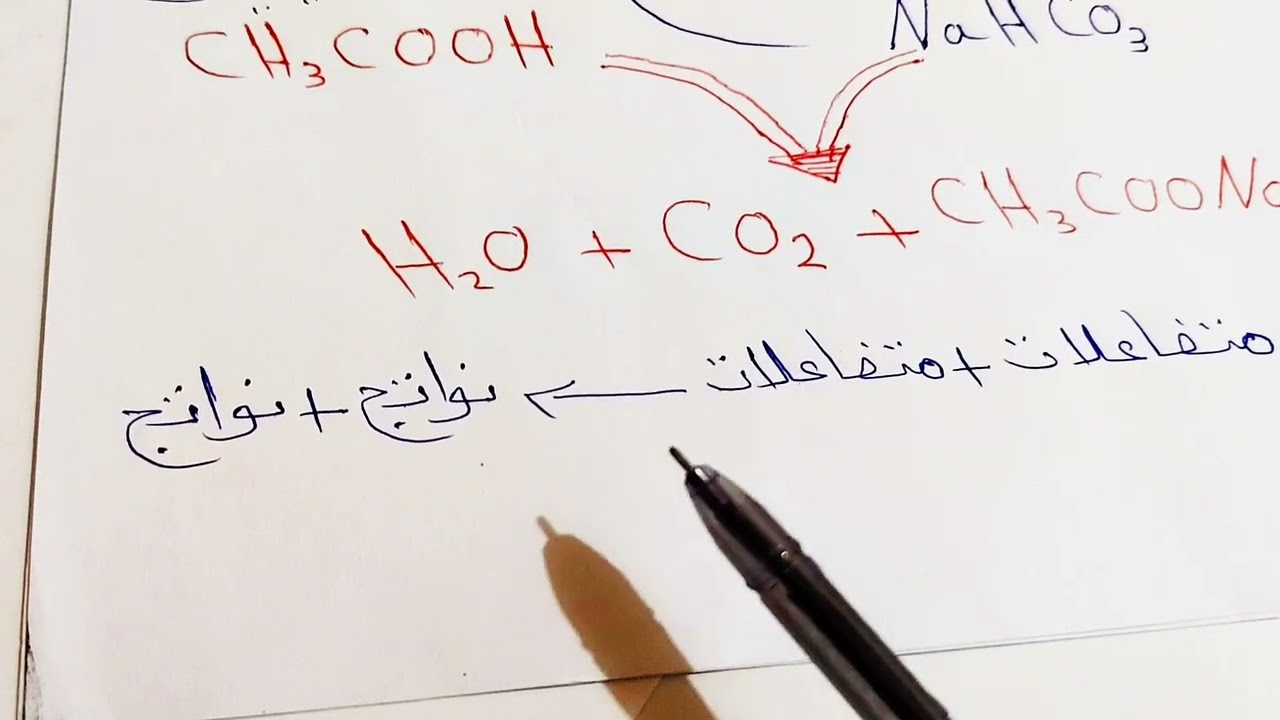 CH₃COOH NaHCO₃
H₂O + CO₂ + CH₃COONa
متفاعلات + متفاعلات ← نواتج + نواتج